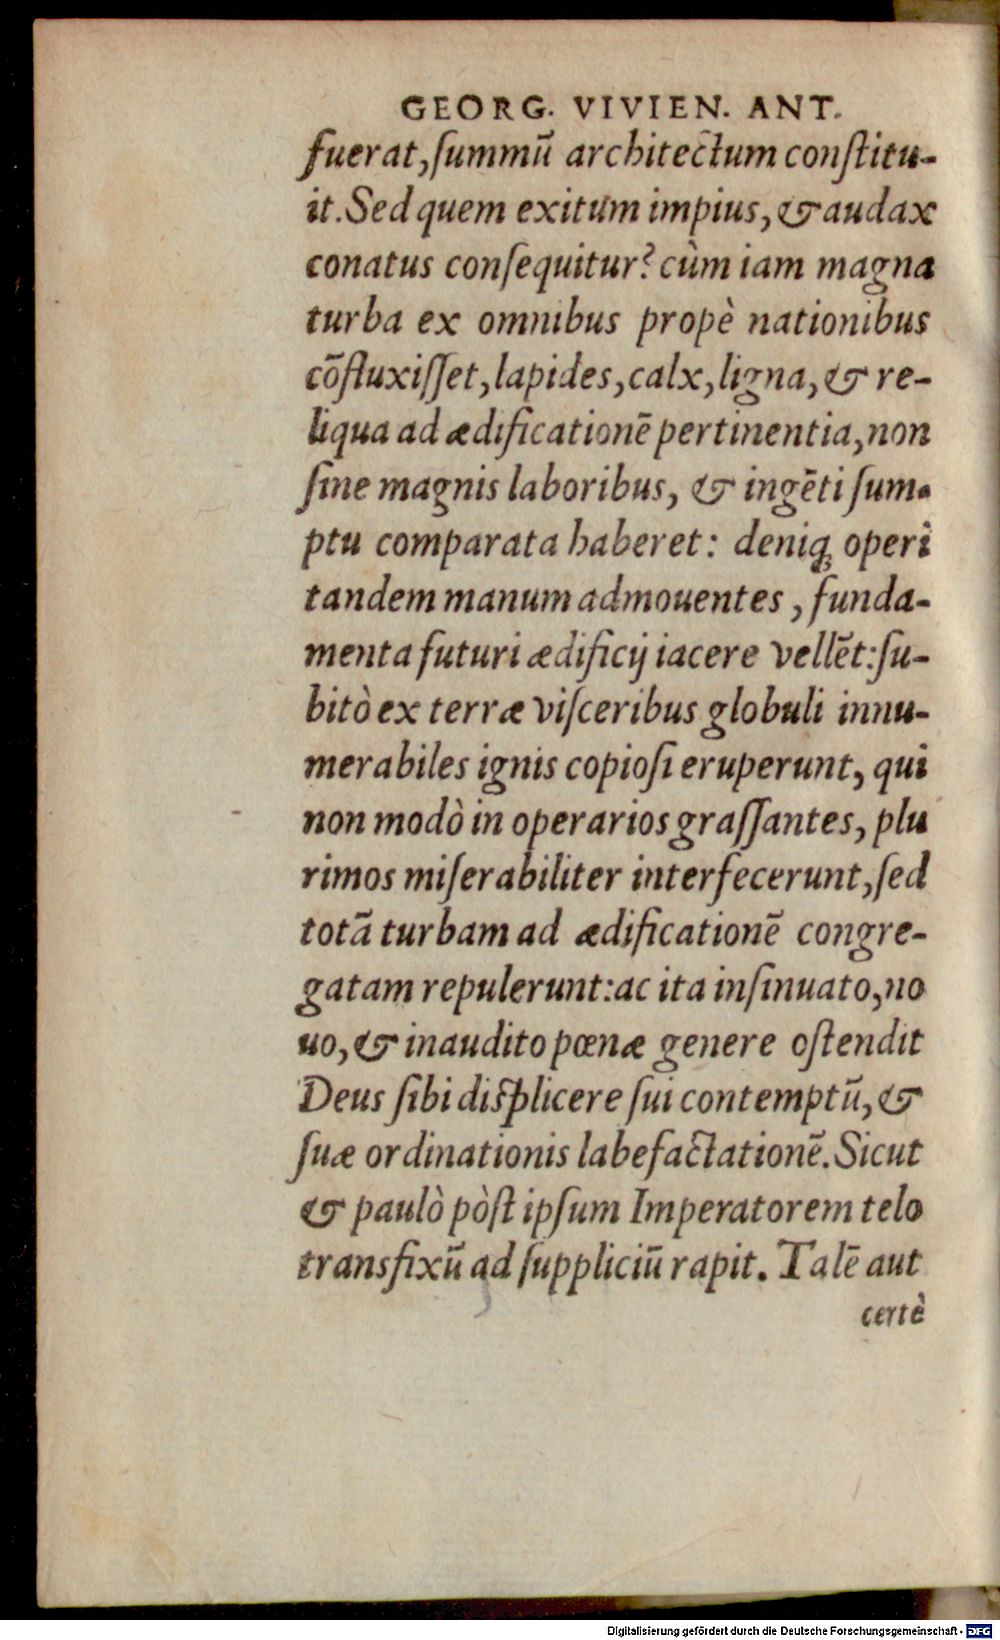 GEORG. VIVIEN. ANT.
fuerat, ſummũ architectum conſtitu-
it. Sed quem exitum impius, & audax
conatus conſequitur? cùm iam magna
turba ex omnibus propè nationibus
cõfluxiſſet, lapides, calx, ligna, & re-
liqua ad ædificationẽ pertinentia, non
ſine magnis laboribus, & ingẽti ſum-
ptu comparata haberet: deniqꝫ operi
tandem manum admouentes, funda-
menta futuri ædificij iacere vellẽt: ſu-
bitò ex terræ viſceribus globuli innu-
merabiles ignis copioſi eruperunt, qui
non modò in operarios graſſantes, plu
rimos miſerabiliter interfecerunt, ſed
totã turbam ad ædificationẽ congre-
gatam repulerunt: ac ita inſinuato, no
uo, & inaudito pœnæ genere oſtendit
Deus ſibi diſplicere ſui contemptũ, &
ſuæ ordinationis labefactationẽ. Sicut
& paulò pòſt ipſum Imperatorem telo
transfixũ ad ſuppliciũ rapit. Talẽ aut
certè
Digitalisierung gefördert durch die Deutsche Forschungsgemeinschaft - DFG